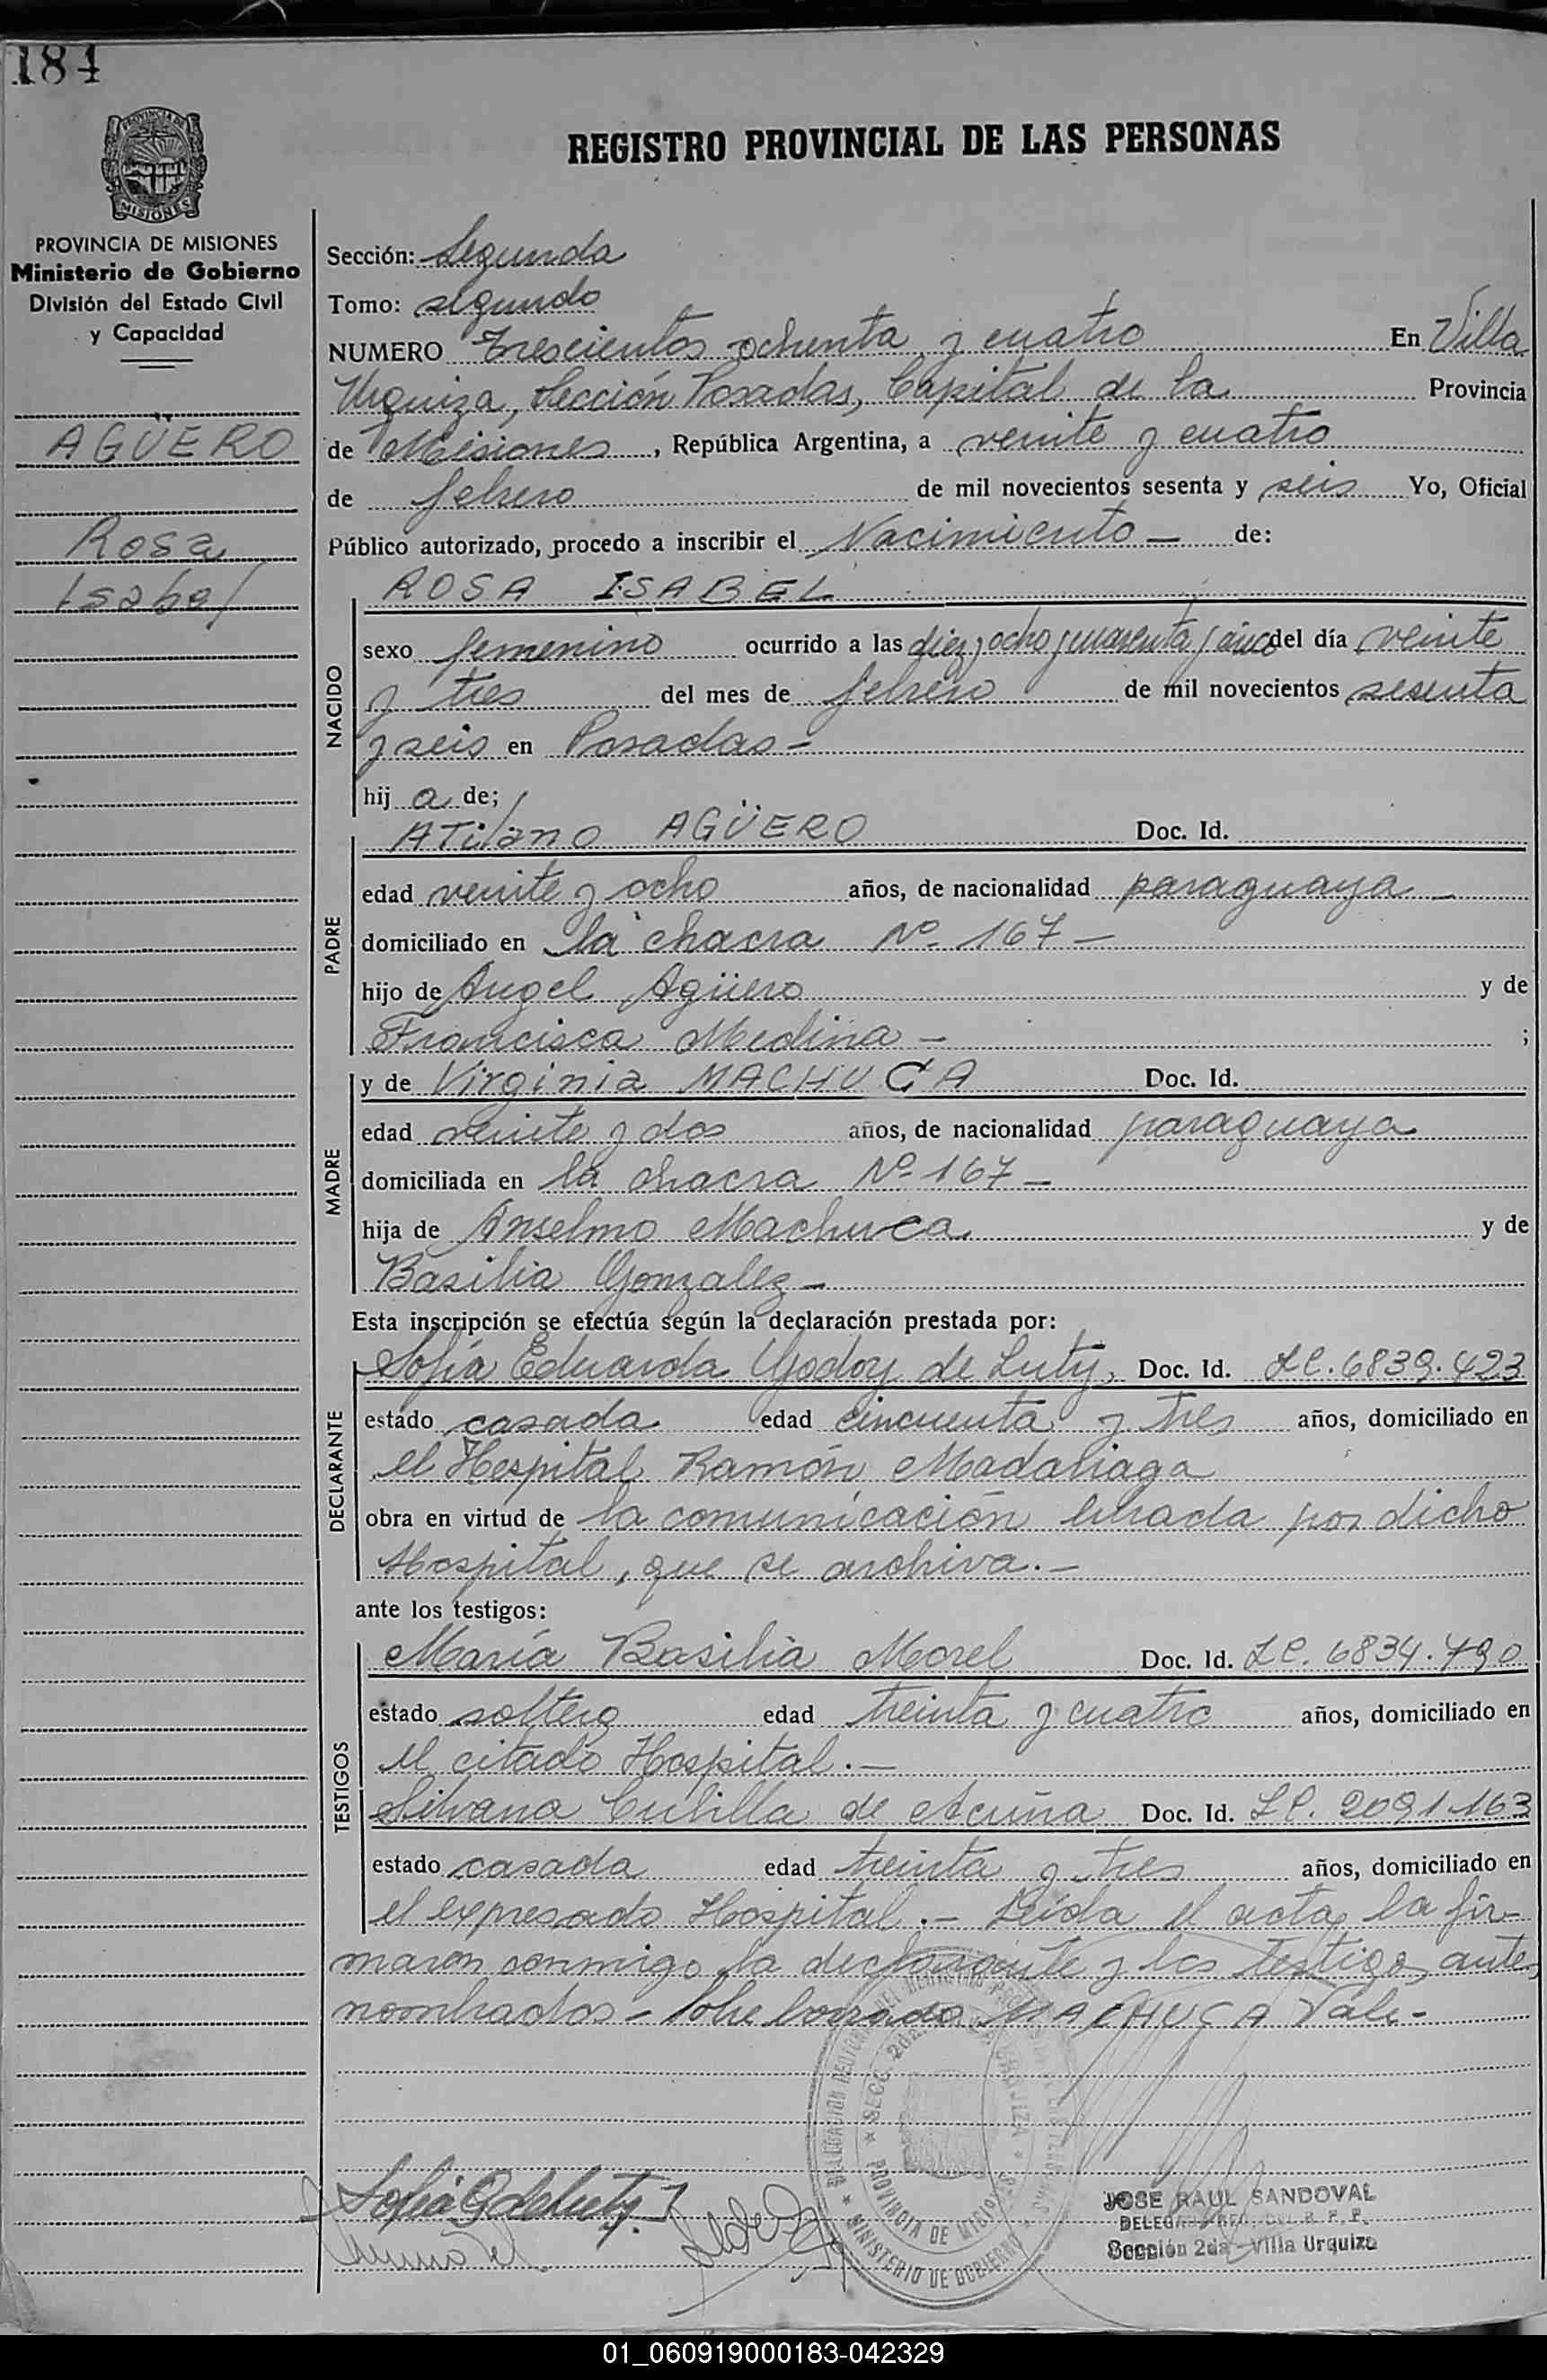 184
PROVINCIA DE
MISIONES
REGISTRO PROVINCIAL DE LAS PERSONAS
PROVINCIA DE MISIONES
Ministerio de Gobierno
División del Estado Civil
y Capacidad
AGÜERO
Rosa
Isabel
Sección: Segunda
Tomo: segundo
NUMERO Trescientos ochenta y cuatro En Villa
Urquiza, Sección Posadas, Capital de la Provincia
de Misiones, República Argentina, a veinte y cuatro
de febrero de mil novecientos sesenta y seis Yo, Oficial
Público autorizado, procedo a inscribir el Nacimiento — de:
ROSA ISABEL
NACIDO
sexo femenino ocurrido a las diez y ocho y cuarenta y cinco del día veinte
y tres del mes de febrero de mil novecientos sesenta
y seis en Posadas -
hij a de;
Atilano AGÜERO Doc. Id.
PADRE
edad veinte y ocho años, de nacionalidad paraguaya -
domiciliado en la chacra Nº 167 -
hijo de Angel Agüero y de
Francisca Medina - ;
y de Virginia MACHUCA Doc. Id.
MADRE
edad veinte y dos años, de nacionalidad paraguaya
domiciliada en la chacra Nº 167 -
hija de Anselmo Machuca y de
Basilia Gonzalez -
Esta inscripción se efectúa según la declaración prestada por:
Sofía Eduarda Godoy de Luty, Doc. Id. LC. 6839.423
DECLARANTE
estado casada edad cincuenta y tres años, domiciliado en
el Hospital Ramón Madariaga
obra en virtud de la comunicación librada por dicho
Hospital, que se archiva. -
ante los testigos:
María Basilia Morel Doc. Id. LC. 6834.790
TESTIGOS
estado soltera edad treinta y cuatro años, domiciliado en
el citado Hospital. -
Silvana Cubilla de Acuña Doc. Id. LC. 2091.163
estado casada edad treinta y tres años, domiciliado en
el expresado Hospital. - Leída el acta, la fir-
maron conmigo la declarante y los testigos ante
nombrados - Sobre borrado MACHUCA Vale -
SECC. 2da
PROVINCIA DE MISIONES
MINISTERIO DE GOBIERNO
Sofía G de Luty
JOSE RAUL SANDOVAL
DELEGADO REG. DEL R. P. P.
Sección 2da - Villa Urquiza
01_060919000183-042329